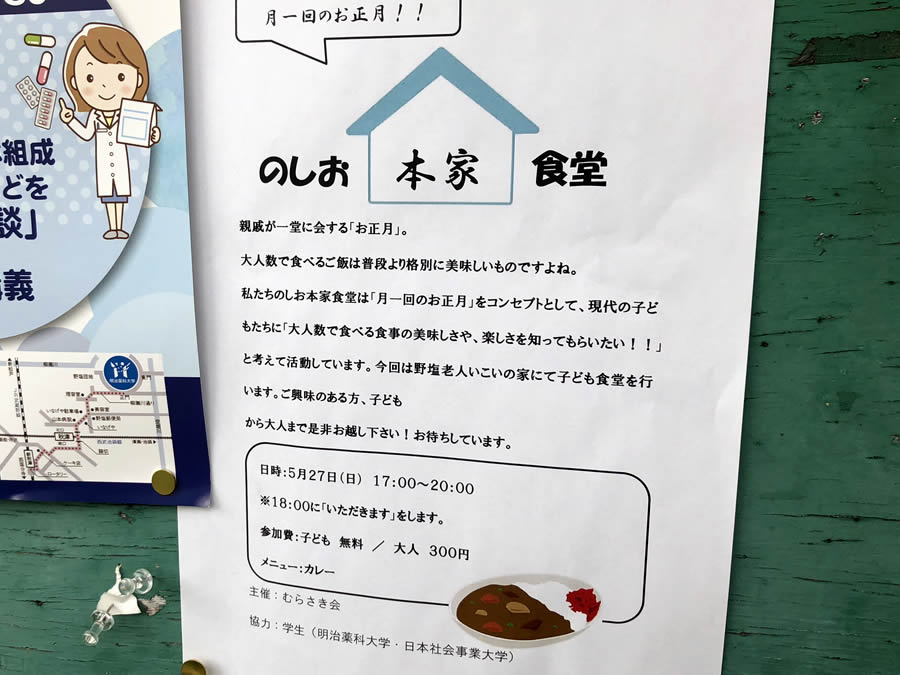 月一回のお正月！！
のしお 本家 食堂
親戚が一堂に会する「お正月」。
大人数で食べるご飯は普段より格別に美味しいものですよね。
私たちのしお本家食堂は「月一回のお正月」をコンセプトとして、現代の子ど
もたちに「大人数で食べる食事の美味しさや、楽しさを知ってもらいたい！！」
と考えて活動しています。今回は野塩老人いこいの家にて子ども食堂を行
います。ご興味のある方、子ども
から大人まで是非お越し下さい！お待ちしています。
日時：5月27日（日） 17:00～20:00
※18:00に「いただきます」をします。
参加費：子ども 無料 ／ 大人 300円
メニュー：カレー
主催：むらさき会
協力：学生（明治薬科大学・日本社会事業大学）
組成
どを
談」
義
明治薬科大学
野塩団地
正門
いなげや駐車場
美容室
山本病院
野塩郵便局
いなげや
秋津
西武池袋線
ケーキ店
ロータリー